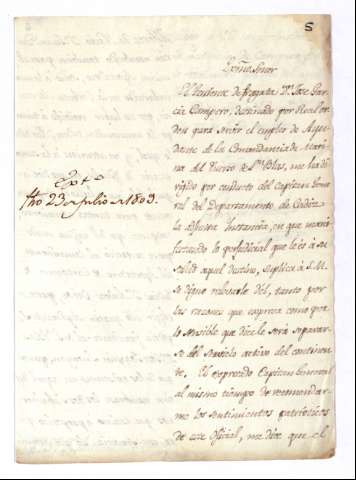 S
Exmo Señor
El Teniente de fragata Dn. Jose Garcia
Campero, destinado por Real orden
para servir el empleo de Ayudante
de la Comandancia de Marina
del Puerto de Sn. Blas, me ha dirigido
por conducto del Capitan General
del Departamento de Cadiz
la adjunta Instancia, en que manifestando
lo perjudicial que le es à su
salud aquel destino, suplica à S.M.
se digne relevarle del, tanto por
las razones que expresa como por
lo sensible que dice le será separarse
del servicio activo del continente.
El expresado Capitan General
al mismo tiempo de recomendarme
los sentimientos patrioticos
de este oficial, me dice que el
Exto
fho 23 de Julio de 1803.